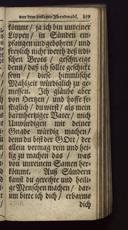 vor dem heiligen Abendmahl. 219
kömmt/ ja ich bin unreiner
Lippen/ in Sünden em-
pfangen und gebohren/ und
freylich nicht werth das lieb-
liches Brod/ geschweige
denn/ daß ich sollte geschickt
seyn/ diese himmlische
Mahlzeit würdiglich zu ge-
niessen. Ich glaube aber
von Hertzen/ und hoffe fe-
stiglich/ du wirst/ als mein
barmhertziger Vater/ mich
Unwürdigen mit deiner
Gnade würdig machen/
denn du bist der GOtt/ der
allein vermag/ rein und hei-
lig zu machen das/ was
von unreinem Samen
herkömmt. Aus Sündern
kanst du gerechte und hei-
lige Menschen machen/ dar-
um bitte ich dich/ erbarme
dich